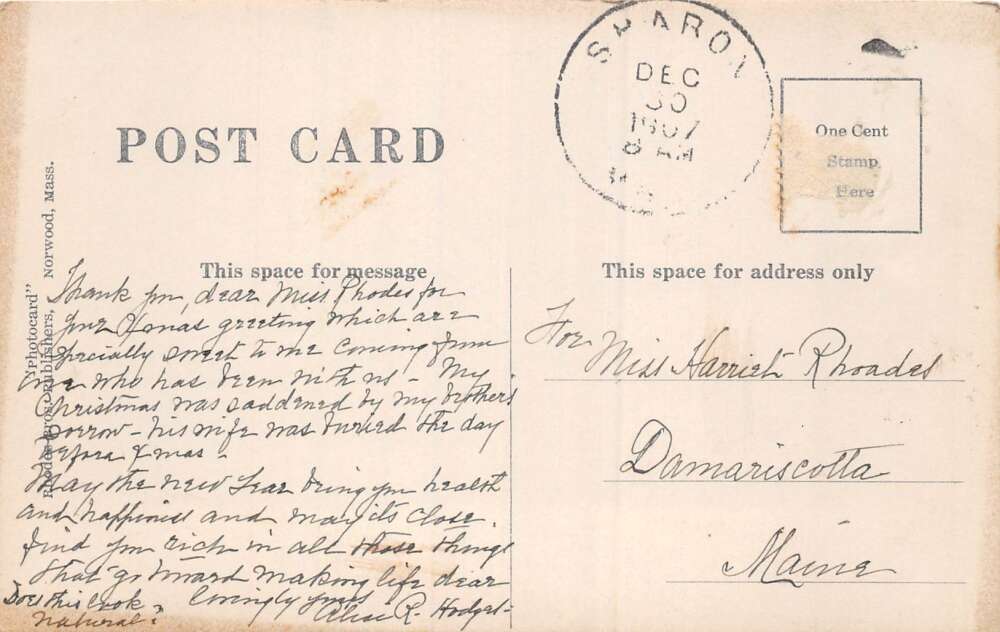 SHARON
DEC
30
1907
8 AM
POST CARD
One Cent
Stamp
Here
"Photocard"
Rhodes Bros., Publishers, Norwood, Mass.
This space for message
This space for address only
Thank you, dear Miss Rhodes for
your Xmas greeting which are
specially sweet to me coming from
one who has been with us - My
Christmas was saddened by my brothers
sorrow - his wife was buried the day
before Xmas -
May the new Year bring you health
and happiness and may its close
find you rich in all those things
that go toward making life dear
Lovingly yours
Alice R. Hodges -
Does this look
natural?
For Miss Harriet Rhoades
Damariscotta
Maine